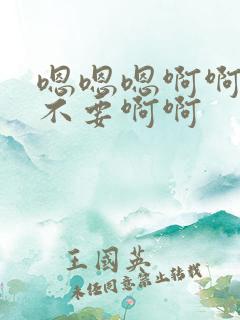 嗯嗯嗯啊啊
不要啊啊
王國英
未经同意禁止转载